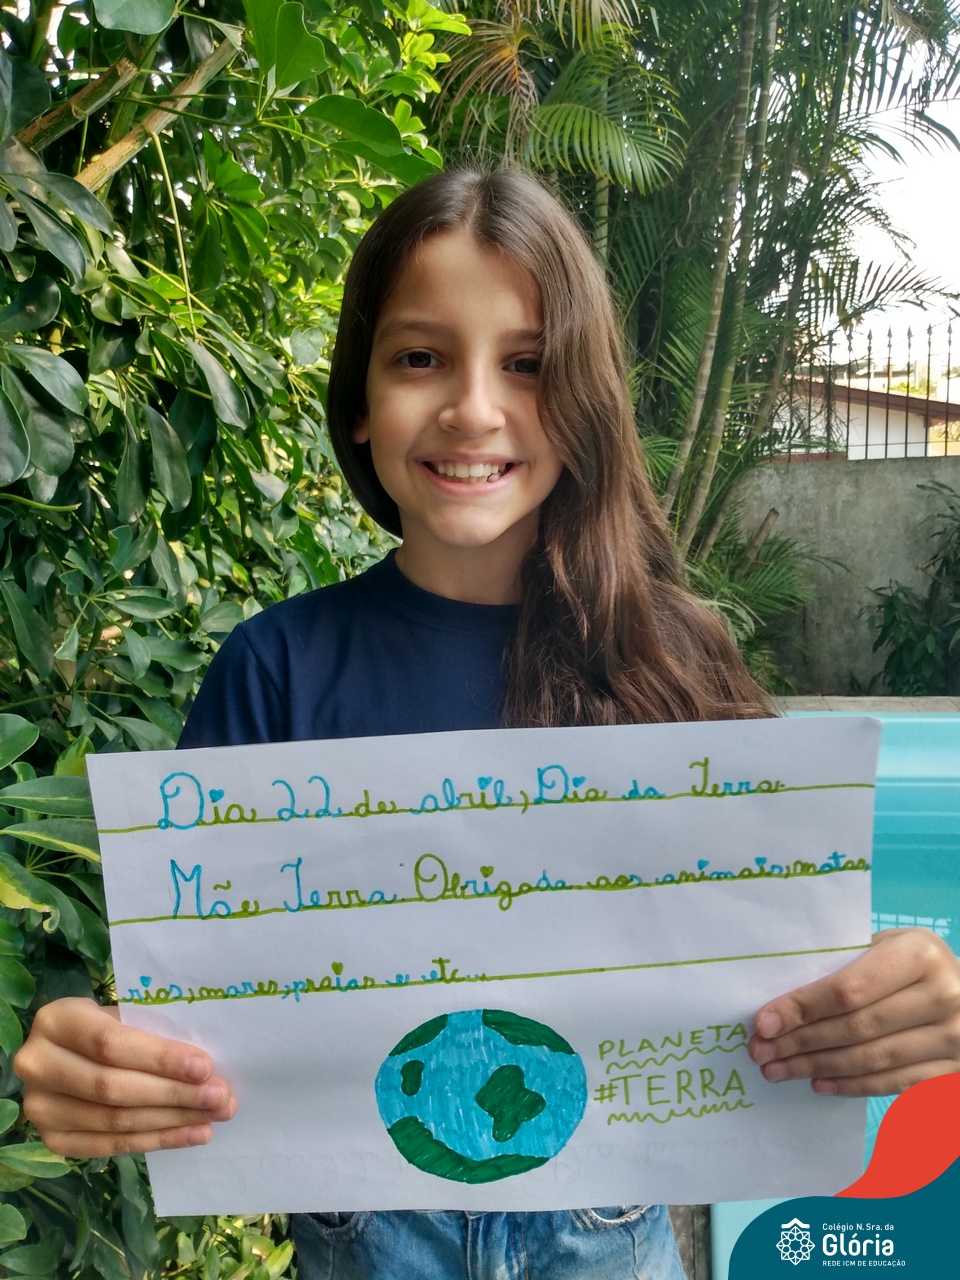 Dia 22 de abril, Dia da Terra.
Mãe Terra. Obrigada aos animais, matas,
rios, mares, praias e etc...
PLANETA
#TERRA
Colégio N. Sra. da
Glória
REDE ICM DE EDUCAÇÃO